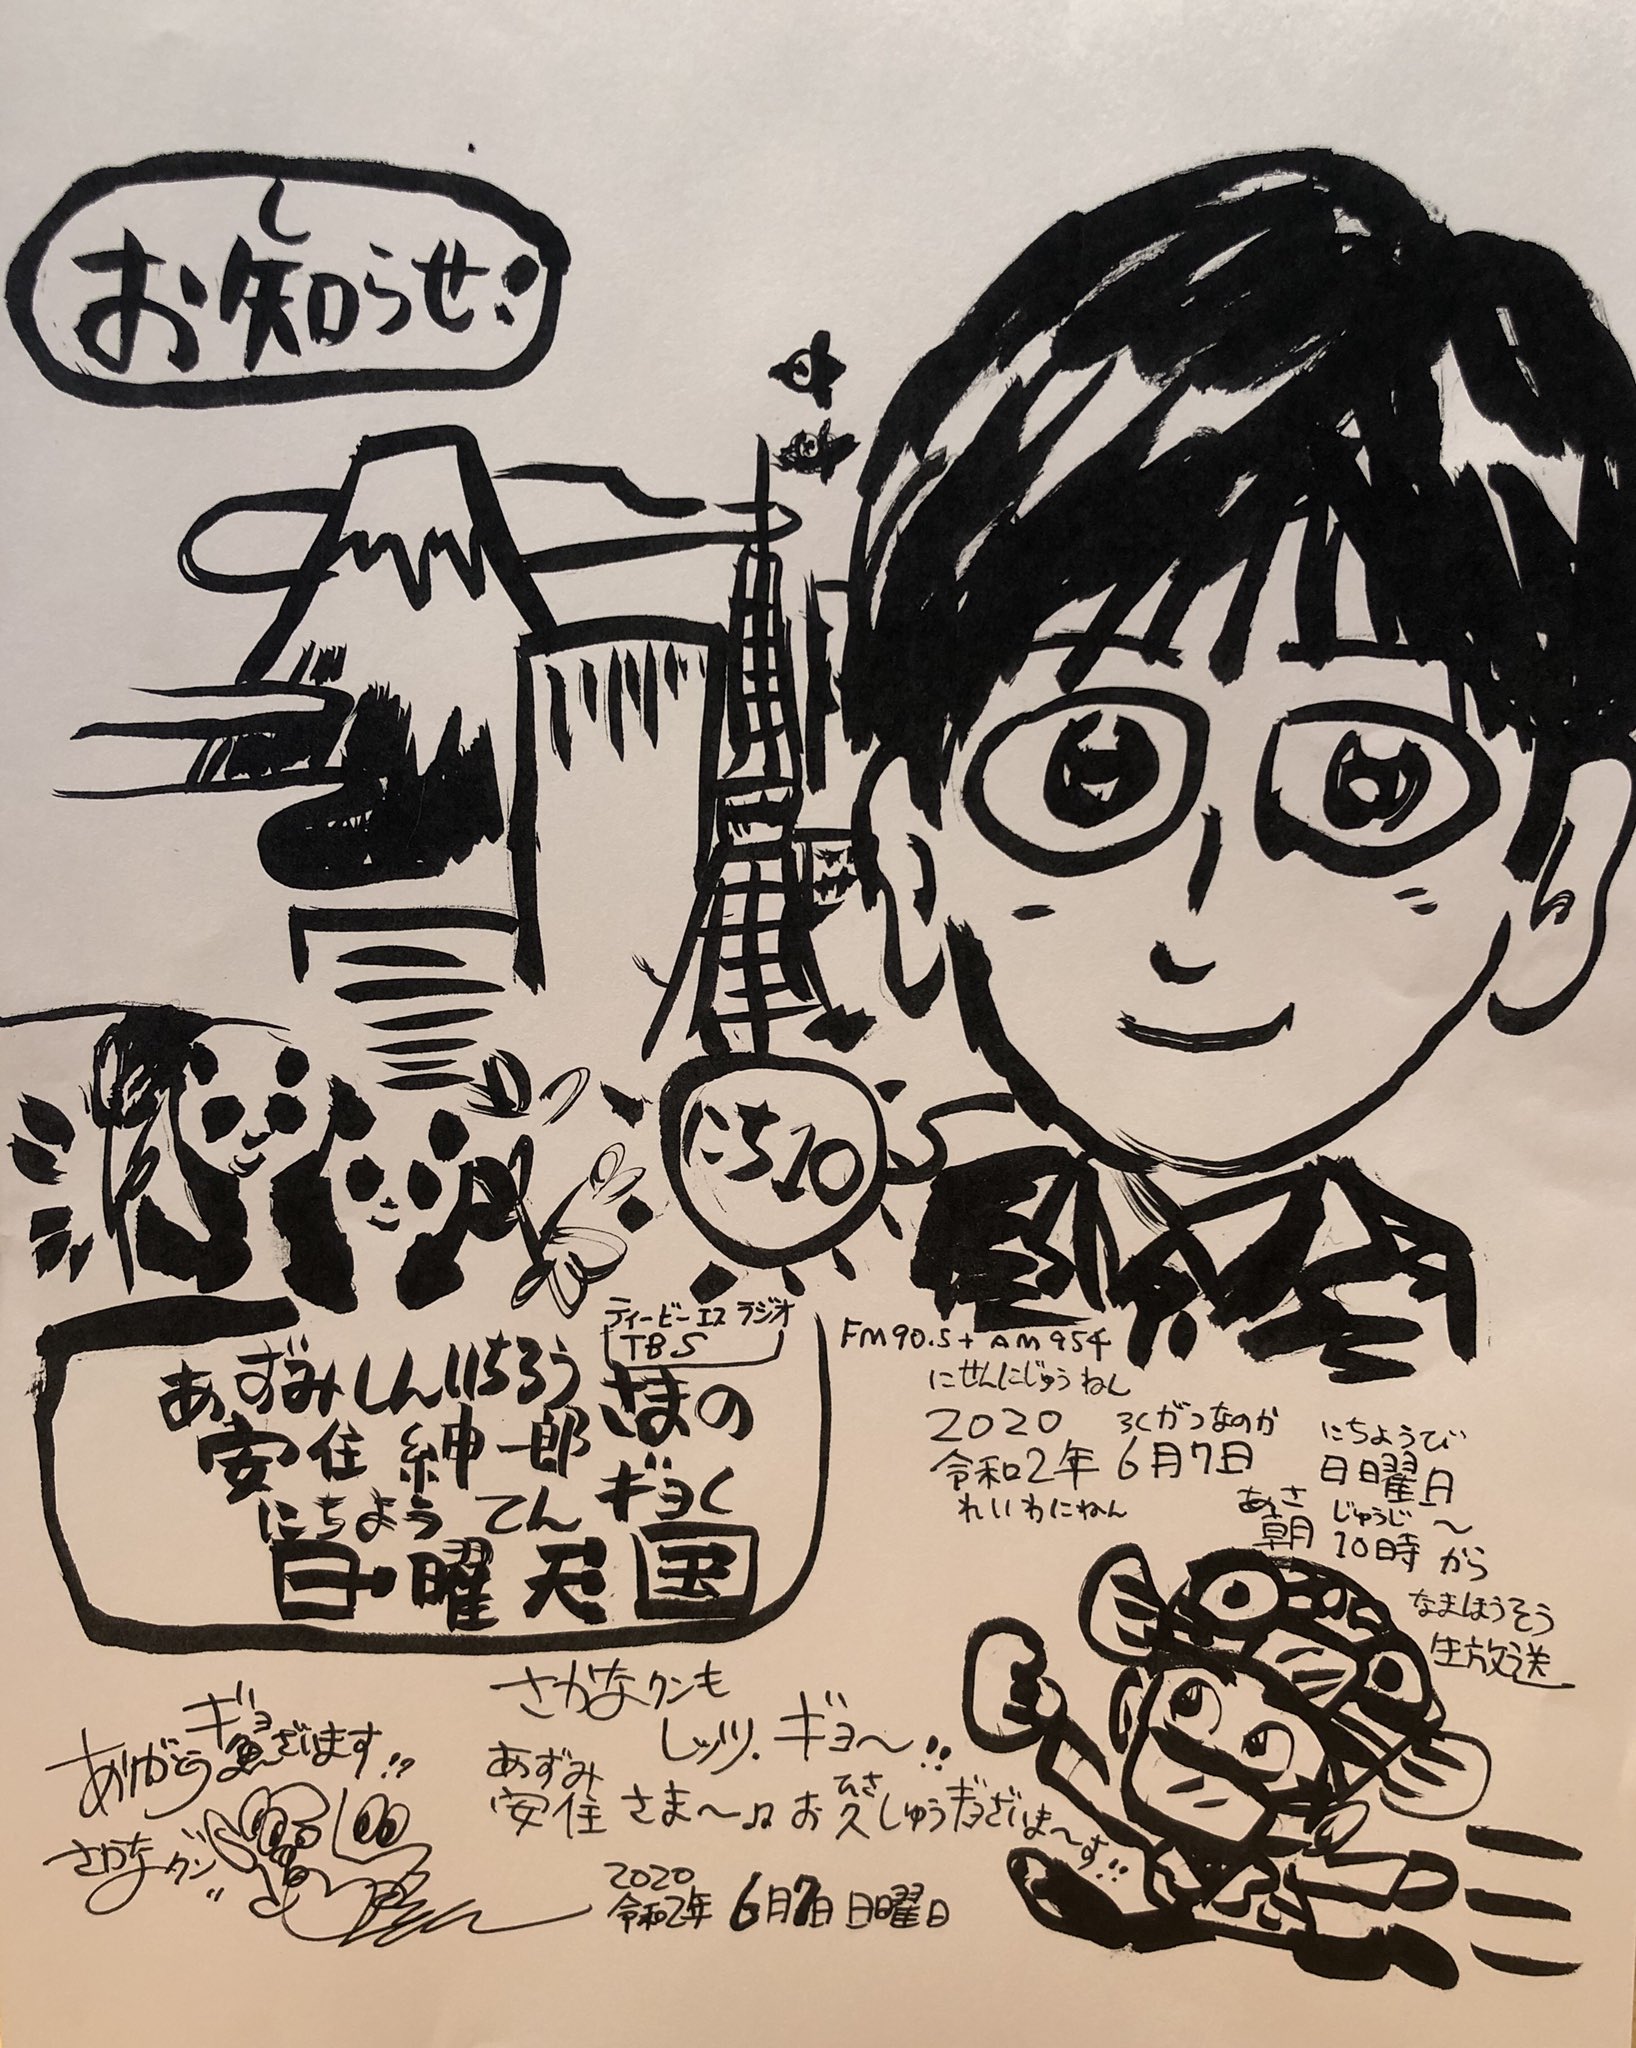 し
お知らせ!
にち10
ティービーエス ラジオ
TBS
FM90.5+AM954
あずみしんいちろう さまの
安住紳一郎
にちよう てん ギョく
日曜天国
にせんにじゅうねん
2020 ろくがつなのか にちようび
令和2年 6月7日 日曜日
れいわにねん
あさ じゅうじ
朝10時〜から
なまほうそう
生放送
さかなクンも
レッツ、ギョ〜!!
あずみ ひさ
安住さま〜♫お久しゅうギョざいま〜す!!
ギョ
ありがとう魚ざいます!?
さかなクン
2020
令和2年 6月7日 日曜日